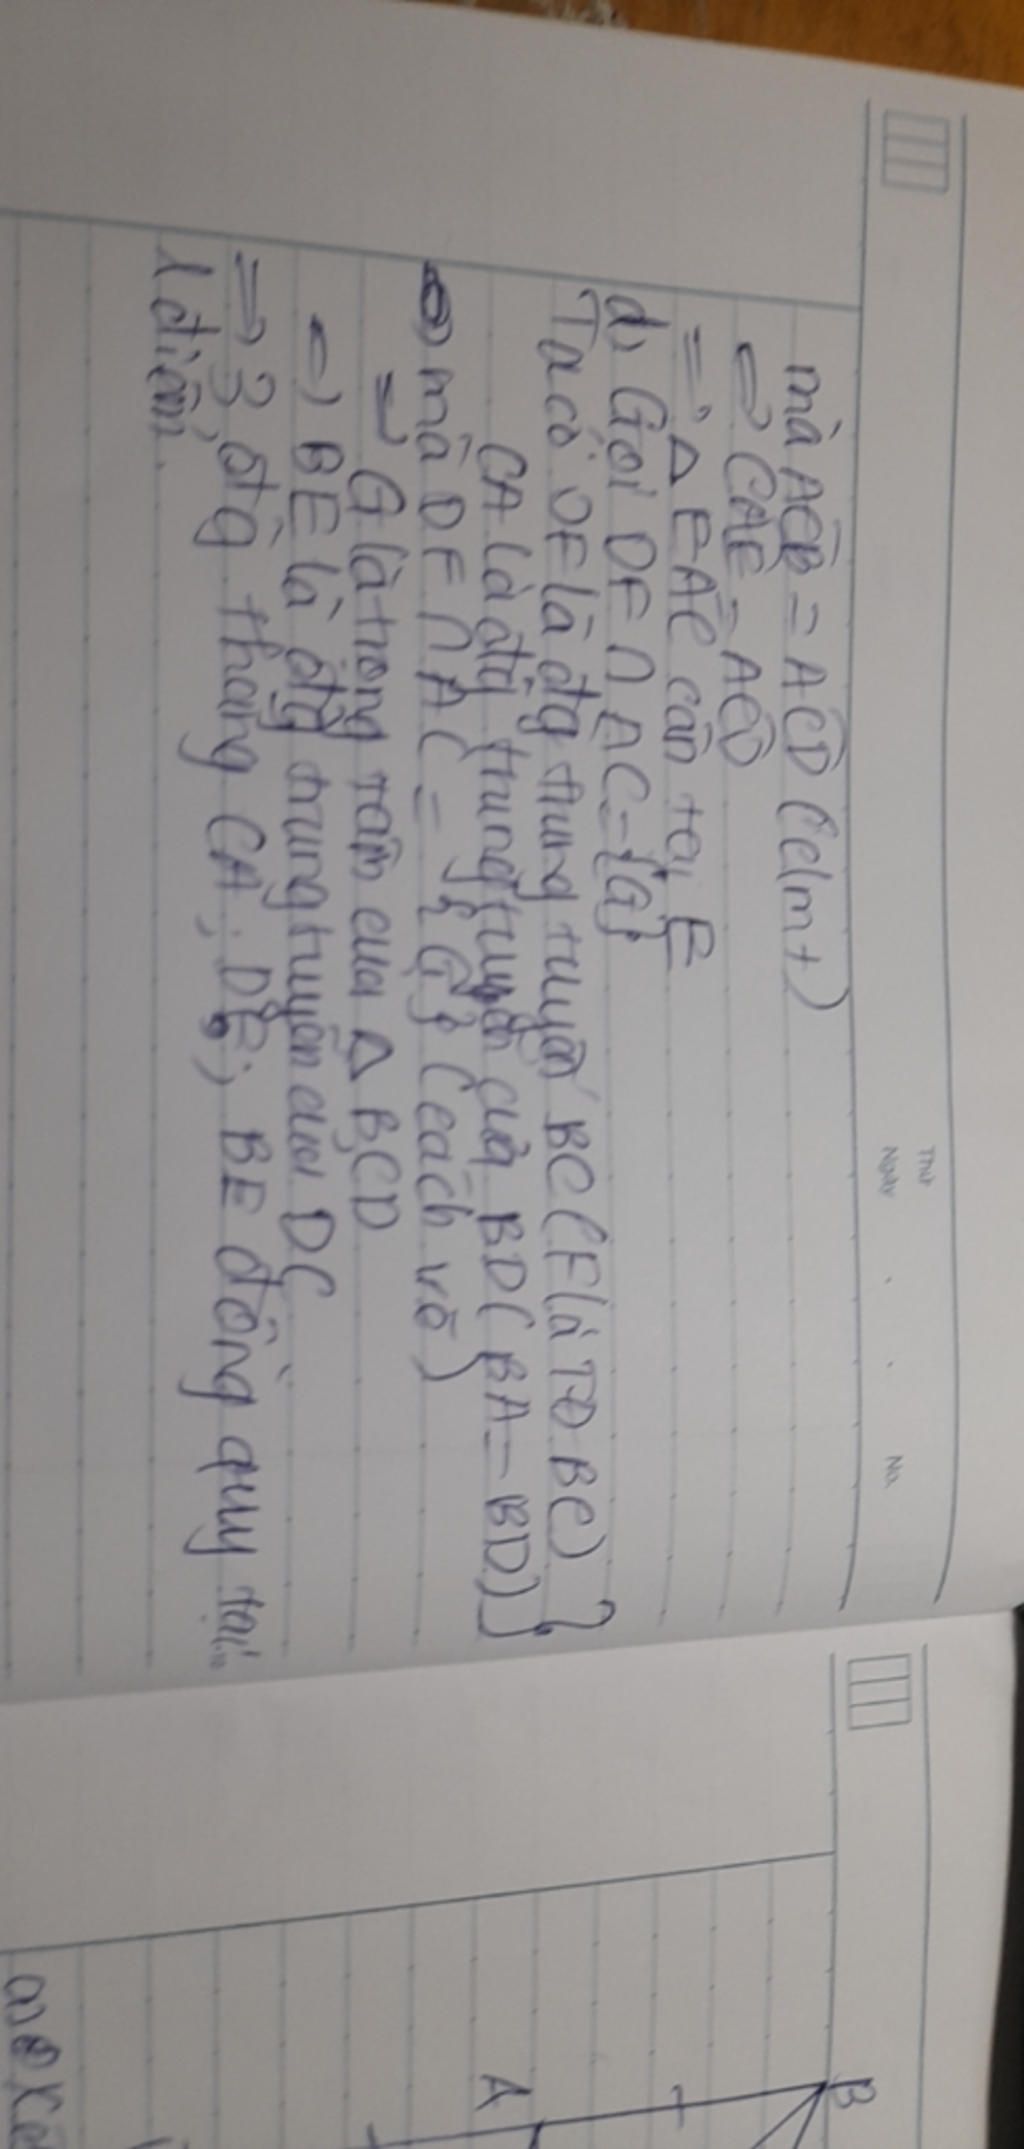 Thứ
Ngày
No.
mà AĈB = AĈD (clmt)
=> CÂE = AĈD
=> Δ EAC cân tại E
d, Gọi DF ∩ AC = {G}
Ta có DF là đg trung tuyến BC (F là TĐ BC)
CA là đg trung tuyến của BD (BA = BD)
mà DF ∩ AC = {G} (cách vẽ)
=> G là trọng tâm của Δ BCD
=> BE là đg trung tuyến của DC
=> 3 đtg thẳng CA; DF; BE đồng quy tại
1 điểm.
B
A
a, Xét